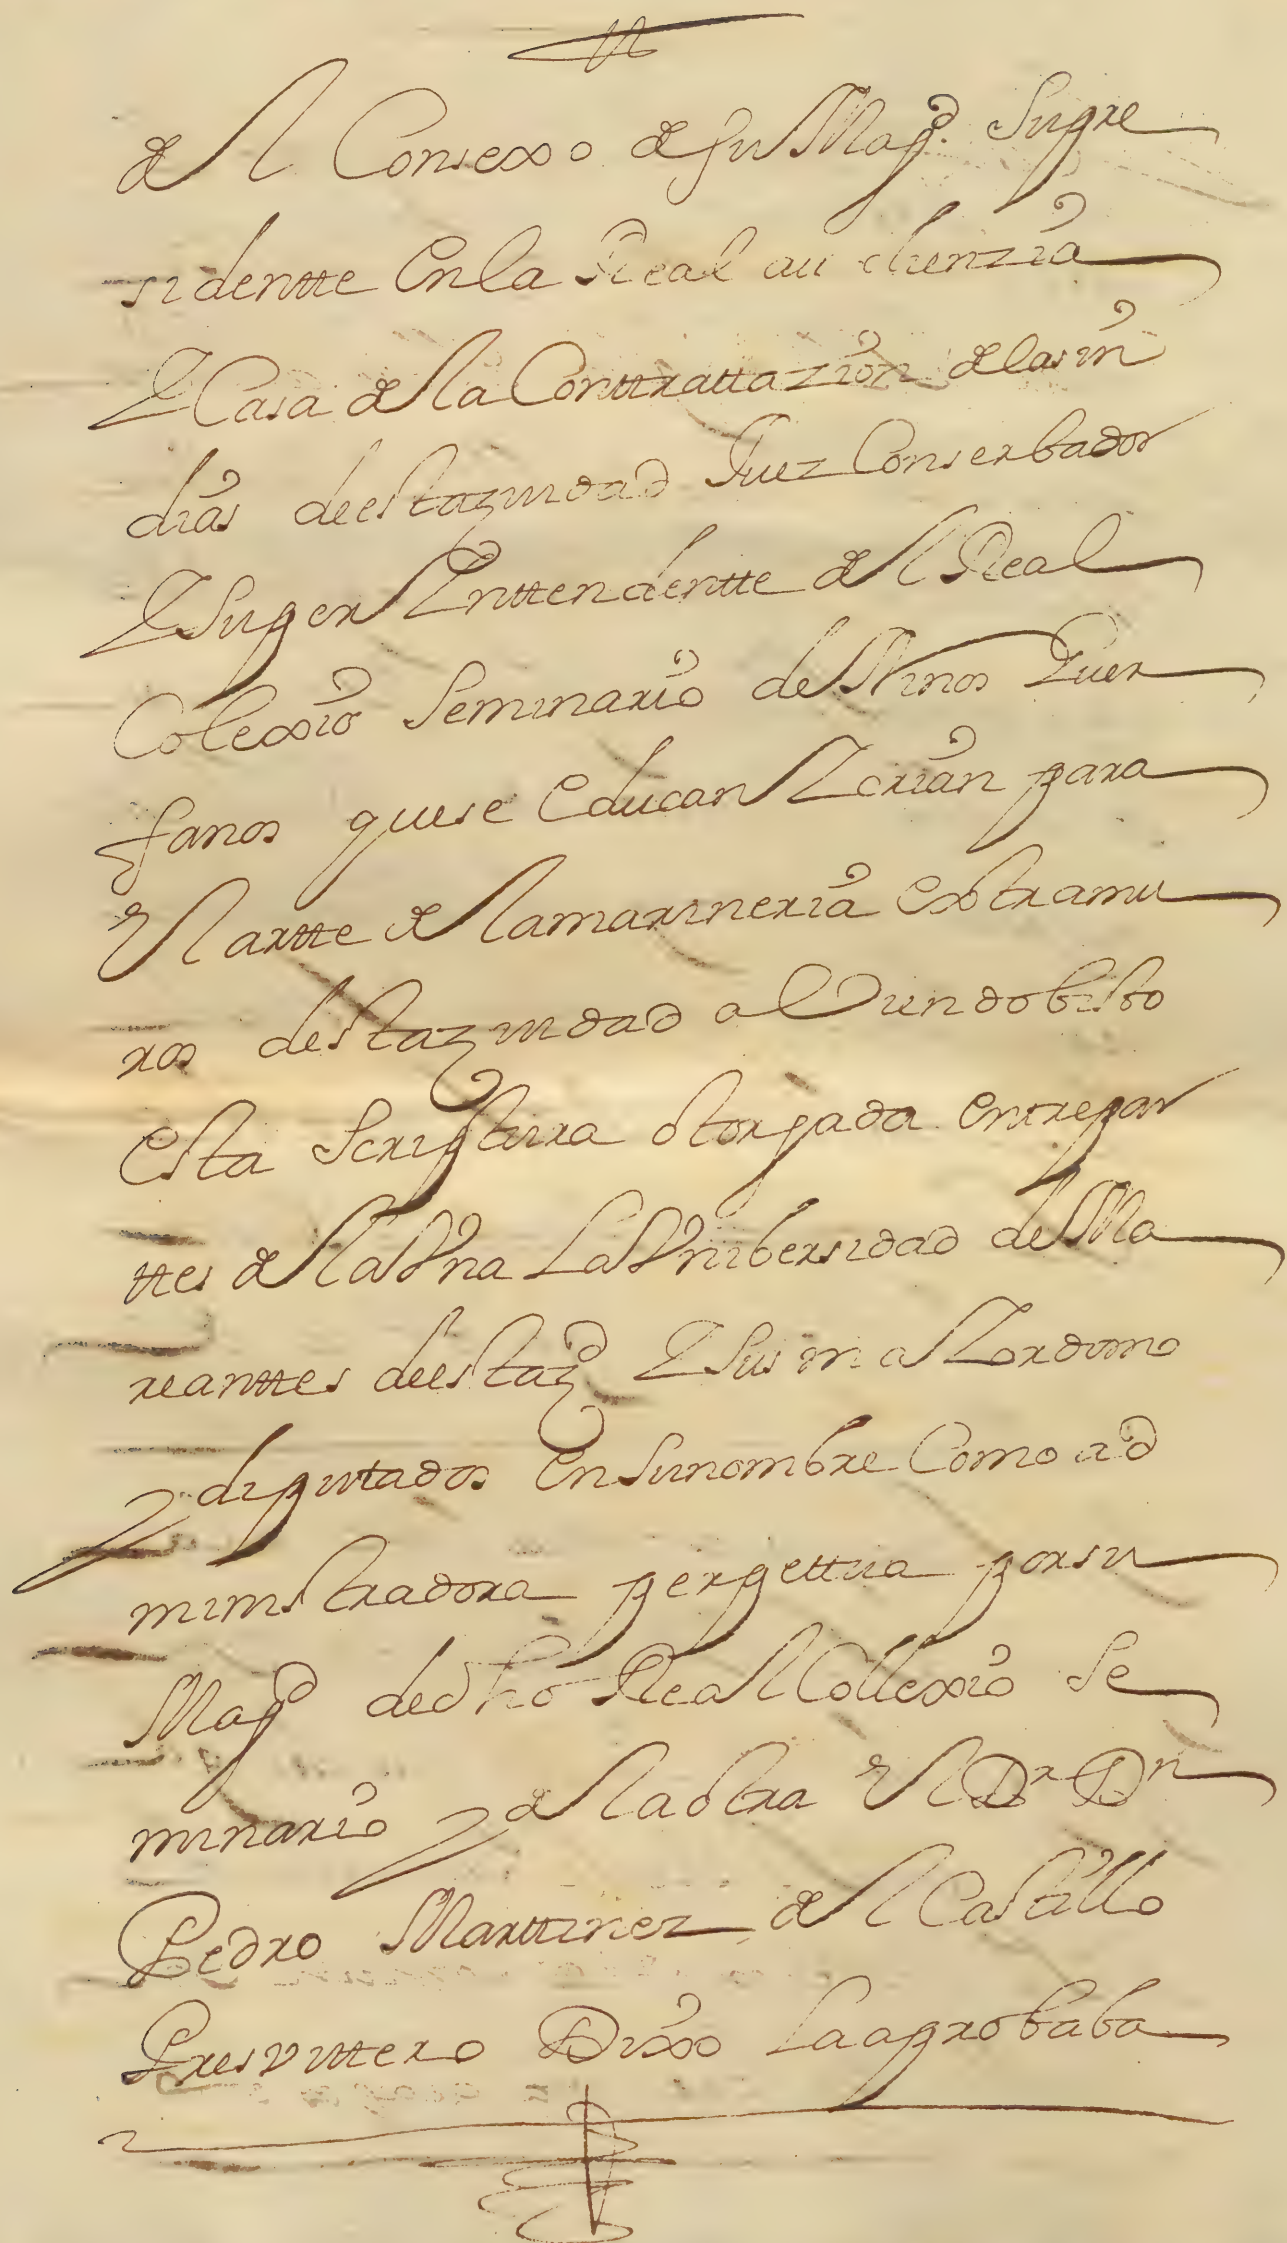 del Consexo de su Magd. Supre
sidentte En la Real audienzia
Y Casa de la Conttrattazion de las in
dias de esta ziudad Juez Conserbador
Y Super Inttendentte del Real
Colexio Seminario de Ninos Huer
fanos que se Educan Y crian para
el artte de la marineria Extramu
ros desta ziudad abiendo bisto
Esta Scriptura otorgada entre par
ttes de la Vna La Vnibersidad de Ma
reanttes de esta zd Y Sus maYordomo
y diputados En Su nombre Como ad
ministradora perpettua por su
Magd de dho Real Collexio Se
minario y de la otra el Dr Dn
Pedro Marttinez del Castillo
Presvittero Dixo La aprobaba